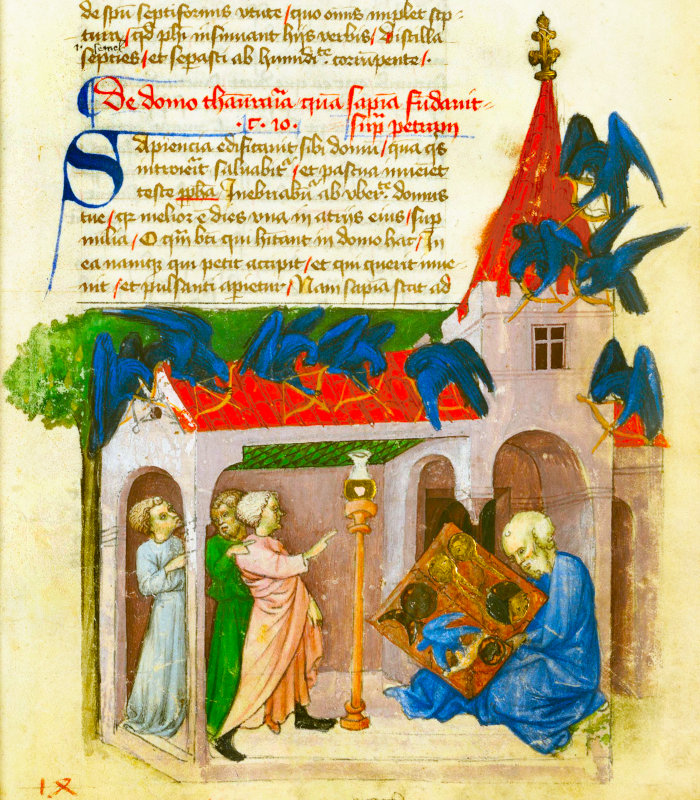 de spū septiformis vtute / quo omīs implet scp-
turā / qđ phī insinuant hijs verbis / Distilla
septies / et sepasti ab humidi^te corrūpente /.
De domo thaurariā quā sapiā fūdauit-
·C·10· sup petram
Sapiencia edificauit sibi domū / quā qs
introierit saluabit^r / et pascua inueniet
teste ppha Inebriabūt^r ab vber^te domus
tue / qr melior ē dies vna in atrijs eius / sup
milia / O qm̄ bti qui hitant in domo hac / In
ea namque qui petit accipit / et qui querit inue-
nit / et pulsanti aperietur / Nam sapiā stat ad